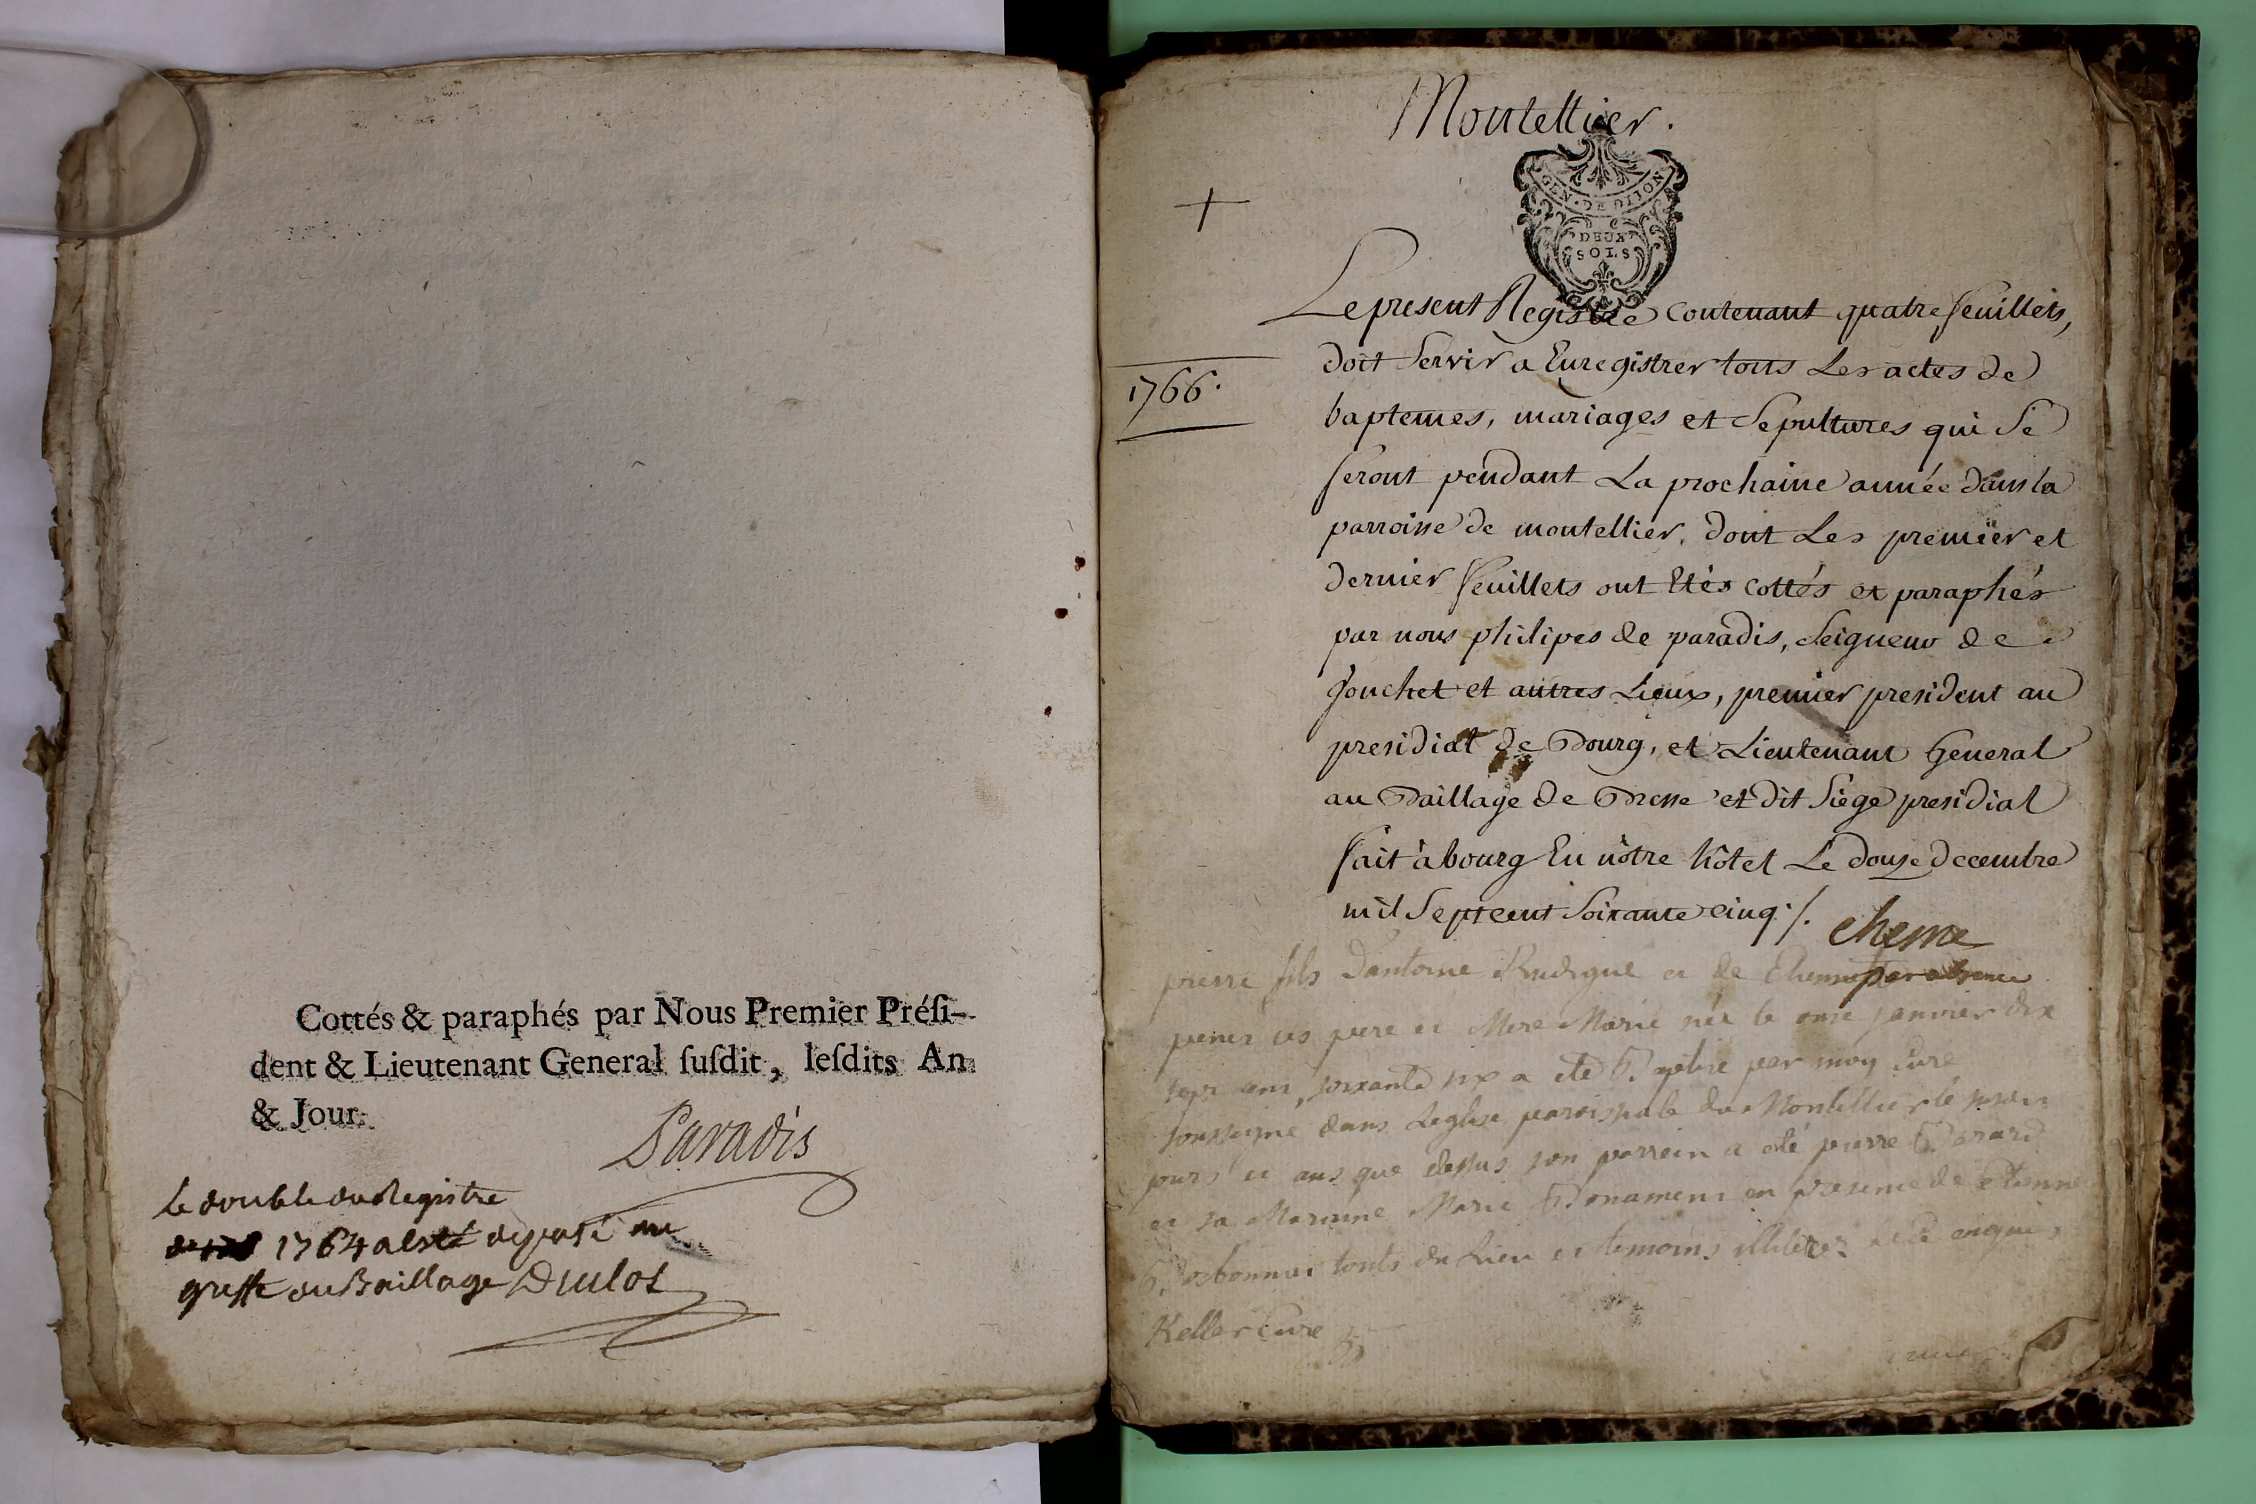 Cottés & paraphés par Nous Premier Prési-
dent & Lieutenant General susdit, lesdits An
& Jour.
Paradis
le double du Registre
1764 a esté deposé au
greffe du Bailliage Dulot
Montellier.
GEN. DE DIJON
DEUX
SOLS
1766.
Le present Registre contenant quatre feuillets,
doit servir a Enregistrer tous Les actes de
baptemes, mariages et Sepultures qui se
feront pendant La prochaine année dans la
parroisse de montellier, dont Les premier et
dernier feuillets ont Etés cottés et paraphés
par nous philipes de paradis, Seigneur de
Jouchet et autres Lieux, premier president au
presidial de Bourg, et Lieutenant General
au Baillage de Bresse et dit Siége presidial
fait à bourg En nôtre hôtel Le douze decembre
mil Sept cent Soixante cinq ./.
chesne
par absence
pierre fils D'antoine et de
ses pere et Mere Marié né le onze janvier dix
sept cent soixante six a eté Baptisé par moy Curé
soussigné dans L'eglise paroissiale du Montellier le
jours et ans que dessus son parrein a eté pierre
et sa Maraine Marie en presence de etienne
touts du Lieu et temoins illiterez enquis
Keller Curé